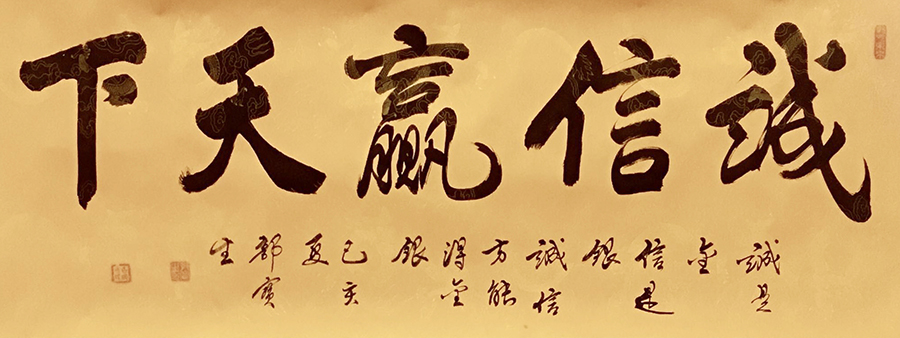 誠信赢天下
誠是
金
信是
銀
誠信
方能
得金
銀
己亥
夏
寶
生